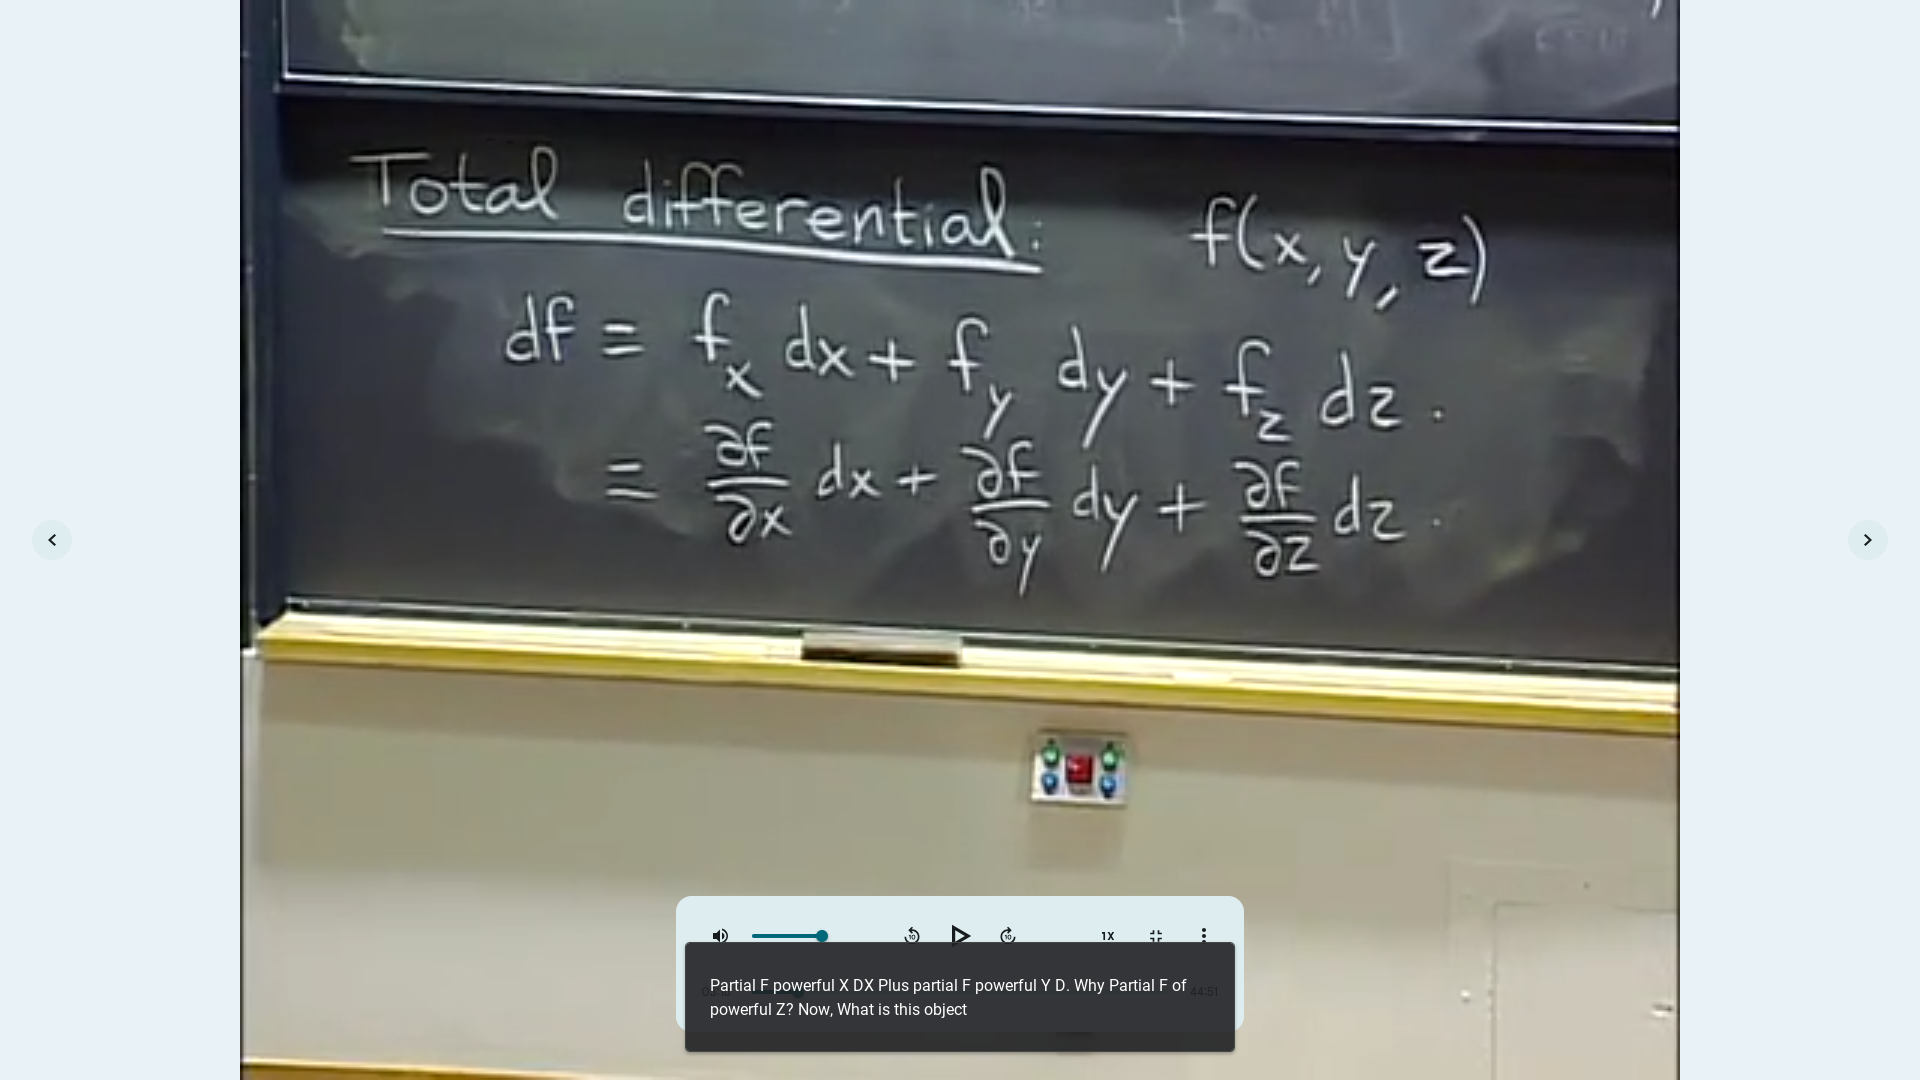 Total differential: f(x, y, z)
df = f_x dx + f_y dy + f_z dz.
= ∂f/∂x dx + ∂f/∂y dy + ∂f/∂z dz.
1X
44:51
Partial F powerful X DX Plus partial F powerful Y D. Why Partial F of
powerful Z? Now, What is this object